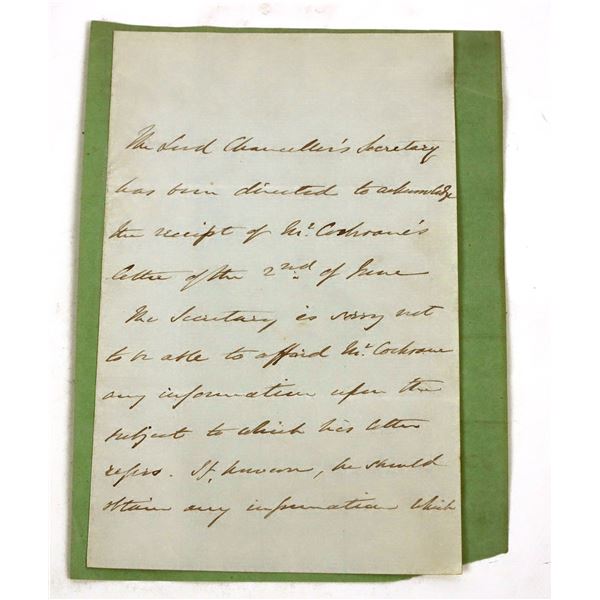 The Lord Chancellor's Secretary
has been directed to acknowledge
the receipt of Mr. Cochrane's
letter of the 2nd of June
The Secretary is sorry not
to be able to afford Mr. Cochrane
any information upon the
subject to which his letter
refers. If, however, he should
obtain any information which